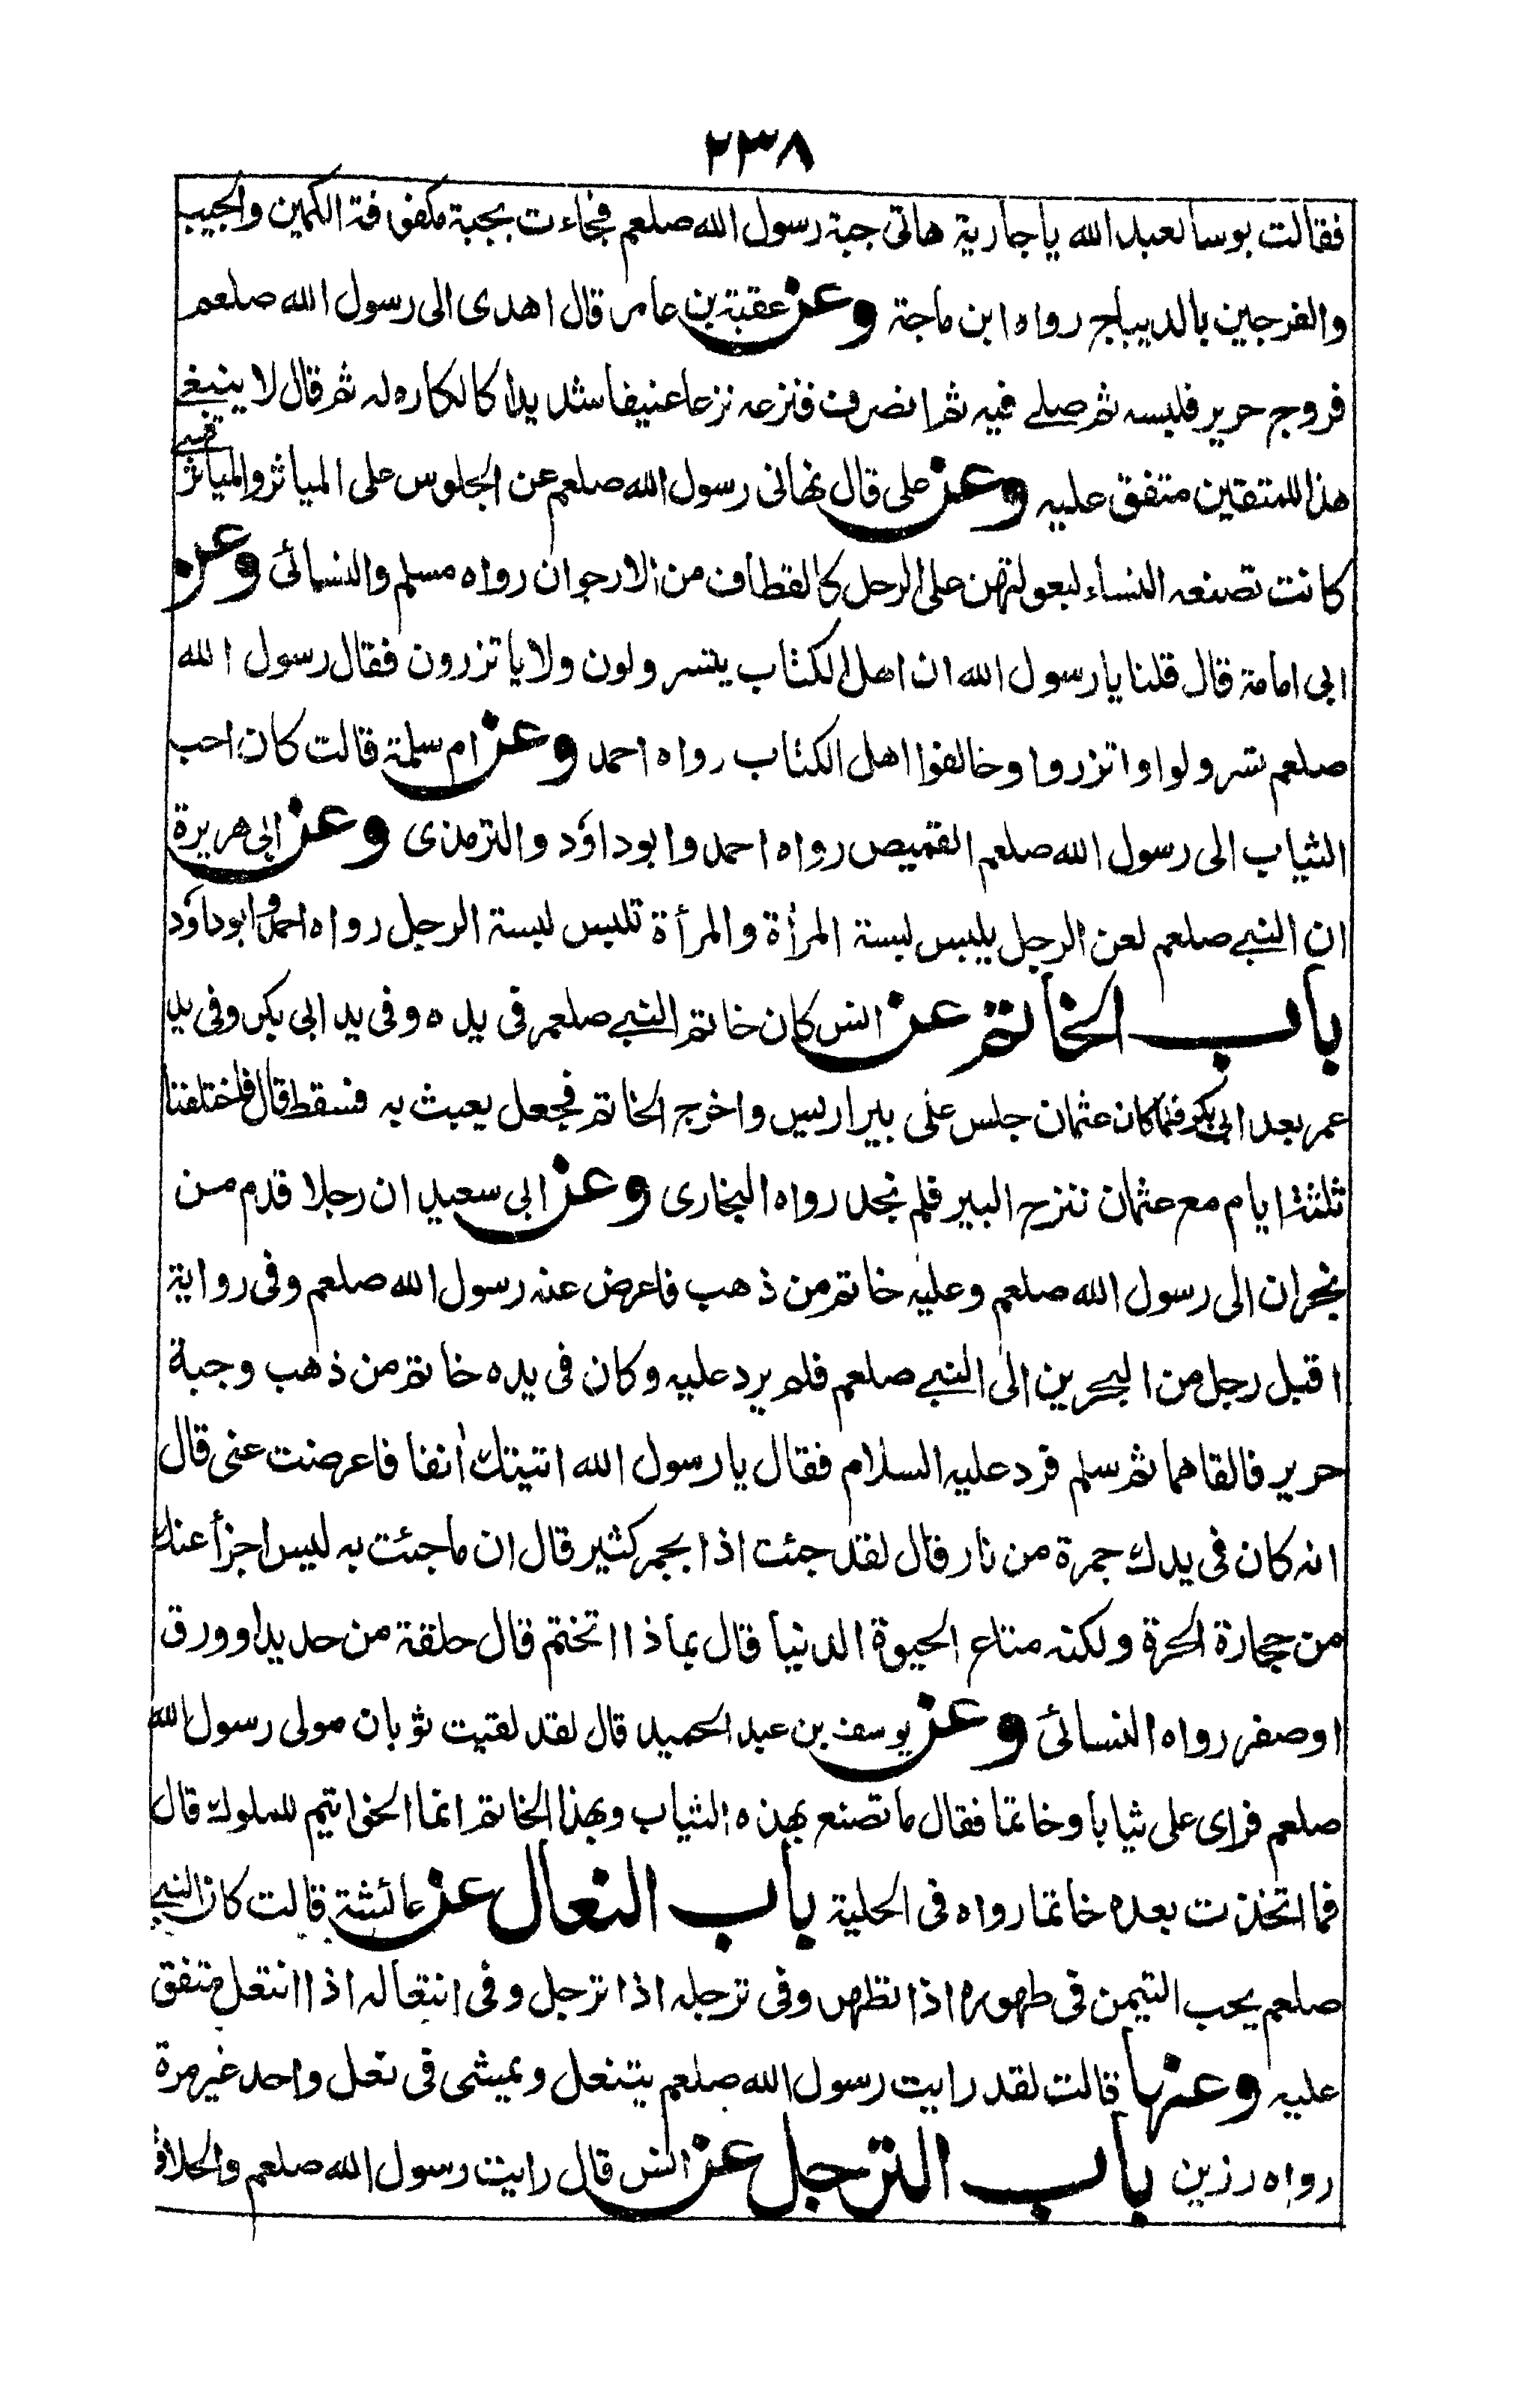 ٢٣٨
فقالت بوسا لعبد الله يا جارية هاتى جبة رسول الله صلعم فجاءت بجبة مكفوفة الكمين والجيب
والفرجين بالديباج رواه ابن ماجة وعن عقبة بن عامر قال اهدى الى رسول الله صلعم
فروج حرير فلبسه ثم صلى فيه ثم انصرف فنزعه نزعا عنيفا شديدا كالكاره له ثم قال لا ينبغى
هذا للمتقين متفق عليه وعن على قال نهانى رسول الله صلعم عن الجلوس على المياثر والمياثر قسى
كانت تصنعه النساء لبعولتهن على الرحل كالقطائف من الارجوان رواه مسلم والنسائى وعن
ابى امامة قال قلنا يا رسول الله ان اهل الكتاب يتسرولون ولا ياتزرون فقال رسول الله
صلعم تسرولوا واتزروا وخالفوا اهل الكتاب رواه احمد وعن ام سلمة قالت كان احب
الثياب الى رسول الله صلعم القميص رواه احمد وابو داؤد والترمذى وعن ابى هريرة
ان النبى صلعم لعن الرجل يلبس لبسة المرأة والمرأة تلبس لبسة الرجل رواه احمد وابو داؤد
باب الخاتم عن انس كان خاتم النبى صلعم فى يده وفى يد ابى بكر وفى يد
عمر بعد ابى بكر فلما كان عثمان جلس على بير اريس واخرج الخاتم فجعل يعبث به فسقط قال فاختلفنا
ثلثة ايام مع عثمان ننزح البير فلم نجد رواه البخارى وعن ابى سعيد ان رجلا قدم من
نجران الى رسول الله صلعم وعليه خاتم من ذهب فاعرض عنه رسول الله صلعم وفى رواية
اقبل رجل من البحرين الى النبى صلعم فلم يرد عليه وكان فى يده خاتم من ذهب وجبة
حرير فالقاهما ثم سلم فرد عليه السلام فقال يا رسول الله اتيتك أنفا فاعرضت عنى قال
انه كان فى يدك جمرة من نار قال لقد جئت اذا بجمر كثير قال ان ما جئت به ليس اجزأ عنك
من حجارة الحرة ولكنه متاع الحيوة الدنيا قال بماذا اتختم قال حلقة من حديد او ورق
او صفر رواه النسائى وعن يوسف بن عبد الحميد قال لقد لقيت ثوبان مولى رسول الله
صلعم فراى على ثيابا وخاتما فقال ما تصنع بهذه الثياب وبهذا الخاتم انما الخواتيم للملوك قال
فما اتخذت بعده خاتما رواه فى الحلية باب النعال عن عائشة قالت كان النبى
صلعم يحب التيمن فى طهوره اذا تطهر وفى ترجله اذا ترجل وفى انتعاله اذا انتعل متفق
عليه وعنها قالت لقد رايت رسول الله صلعم يتنعل ويمشى فى نعل واحد غير مرة
رواه رزين باب الترجل عن انس قال رايت رسول الله صلعم والحلاق